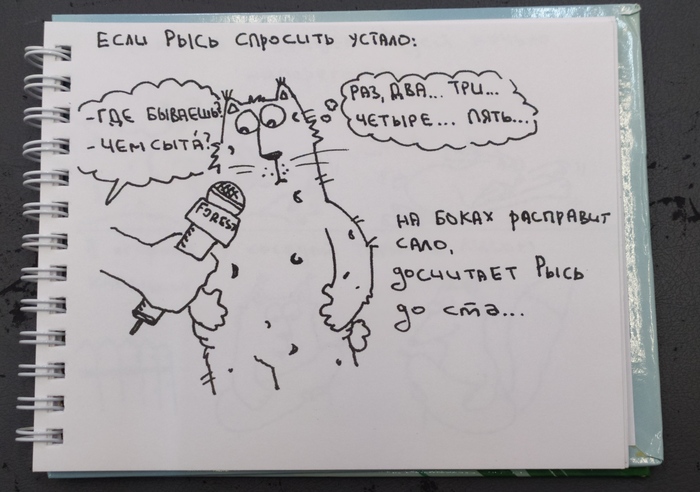 ЕСЛИ РЫСЬ СПРОСИТЬ УСТАЛО:
-ГДЕ БЫВАЕШЬ?
-ЧЕМ СЫТА́?
РАЗ, ДВА... ТРИ...
ЧЕТЫРЕ... ПЯТЬ...
FOREST
НА БОКАХ РАСПРАВИТ
САЛО,
ДОСЧИТАЕТ РЫСЬ
ДО СТА...